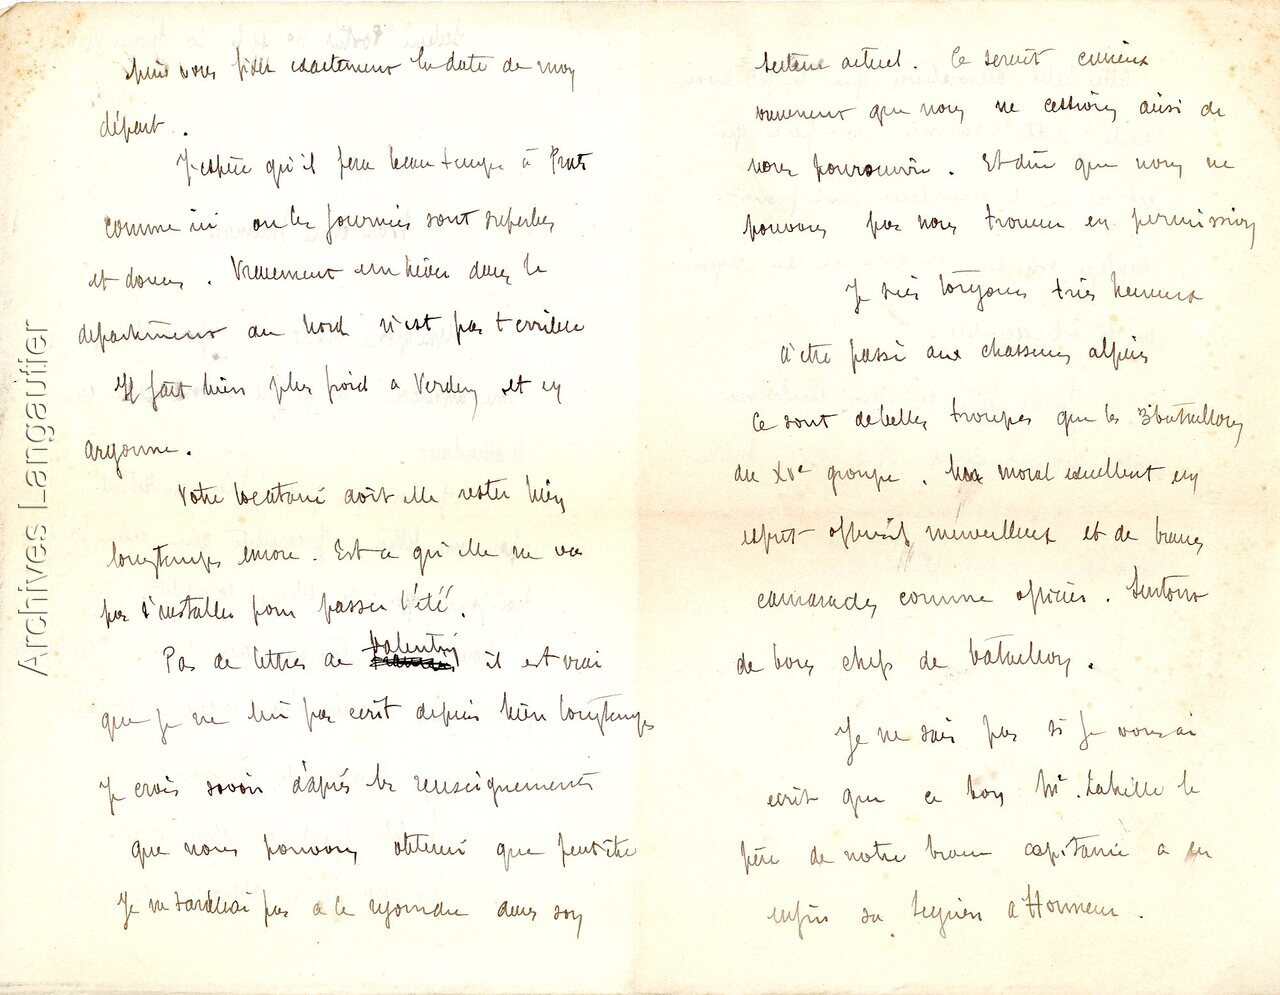 puis vous fixer exactement la date de mon
départ.
J'espère qu'il fera beau temps à Prats
comme ici où les journées sont superbes
et douces. Vraiment un hiver dans le
département du Nord n'est pas terrible
Il fait bien plus froid a Verdun et en
argonne.
Votre locataire doit elle rester bien
longtemps encore. Est ce qu'elle ne va
pas s'installer pour passer l'été.
Pas de lettres de Valentin il est vrai
que je ne lui pas ecrit depuis bien longtemps
Je crois savoir d'après les renseignements
que nous pouvons obtenir que peut être
Je ne tarderai pas a le rejoindre dans son
secteur actuel. Ce serait curieux
vraiment que nous ne cessions ainsi de
nous poursuivre. Et dire que nous ne
pouvons pas nous trouver en permission
Je suis toujours très heureux
d'être passé aux chasseurs alpins
Ce sont de belles troupes que les 3 bataillons
du XVe groupe. moral excellent un
esprit offensif merveilleux et de braves
camarades comme officiers. Surtout
de bons chefs de bataillon.
Je ne sais pas si Je vous ai
ecrit que ce bon Mr. Lahille le
père de notre brave capitaine a eu
enfin sa Legion d'Honneur.
Archives Langautier